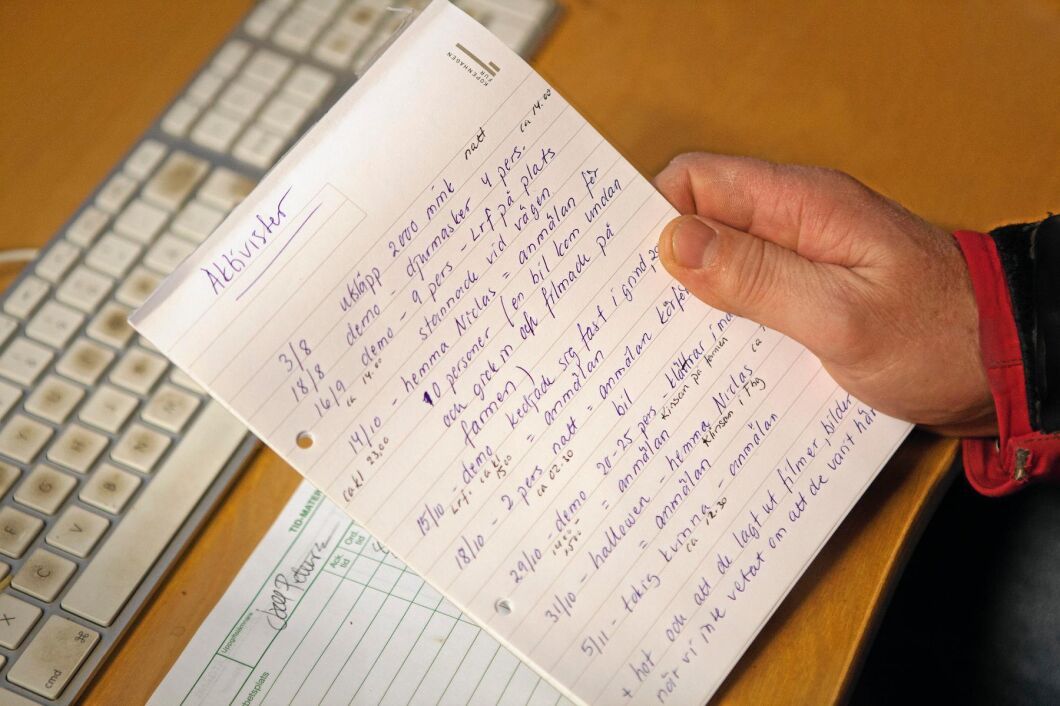 KOPENHAGEN
FUR
Aktivister
3/8 utsläpp 2000 mink natt
18/8 demo - djurmasker 4 pers. ca 14.00
16/9 demo - 9 pers - Lrf på plats
ca 14.00 stannade vid vägen
14/10 - hemma Niclas = anmälan för
cakl 23,00 10 personer (en bil kom undan
och gick in och filmade på
farmen)
15/10 - demo kedjade sig fast i grind,
Lrf. ca kl 1500 = anmälan
18/10 - 2 pers natt = anmälan körför
ca 02.30 bil
29/10 - demo 20-25 pers - klättrar i
1400- 1500 = anmälan Klinson på farmen
31/10 - halloween - hemma Niclas ca
= anmälan Klinson i Thg
5/11 - tokig kvinna - anmälan
ca 12.30
+ hot och att de lagt ut filmer, bilder
när vi inte vetat om att de varit här
TID-MATER
Ack tid
Ord. tid
Uppgiftslämnare
betsplats
Y
H
N
G
B
F
V
C
X
cmd
⌘